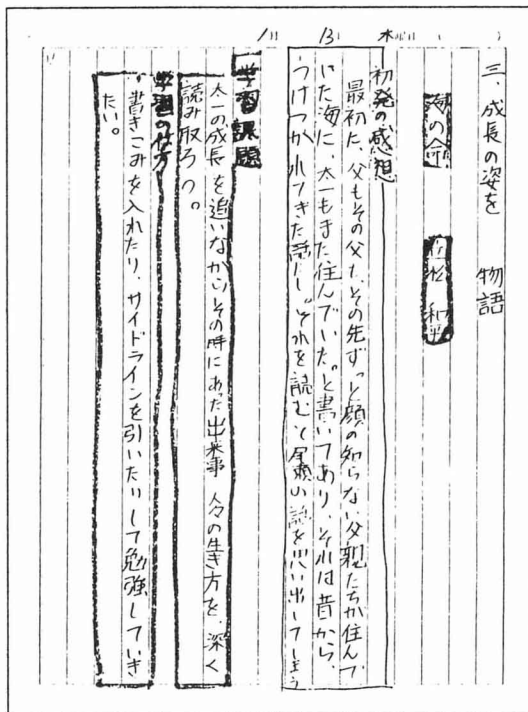 1 13 水
三、成長の姿を 物語
海の命 立松 和平
初発の感想
最初に、父もその父も、その先ずっと顔の知らない父親たちが住んで
いた海に、太一もまた住んでいた。と書いてあり、それは昔から、
うけつがれてきた話だし。それを読むと の話を思い出してしまう
学習課題
太一の成長を追いながら、その時にあった出来事 人々の生き方を、深く
読み取ろう。
学習の仕方
書きこみを入れたり、サイドラインを引いたりして勉強していき
たい。